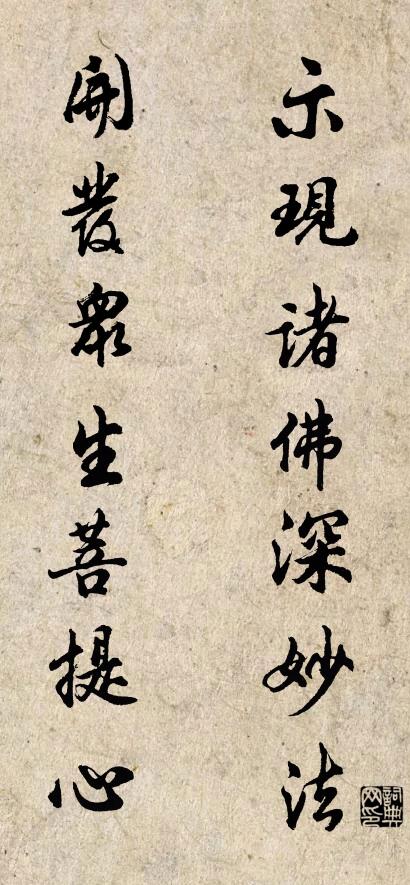 示現諸佛深妙法
開發眾生菩提心
詞典网印